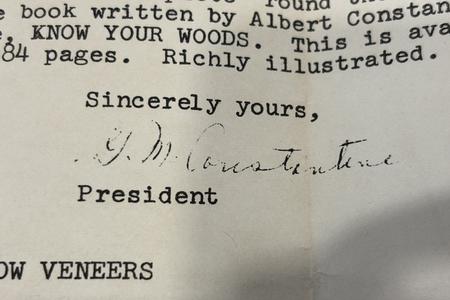 round
e book written by Albert Constan
e, KNOW YOUR WOODS. This is ava
84 pages. Richly illustrated.
Sincerely yours,
G. M. Constantine
President
OW VENEERS